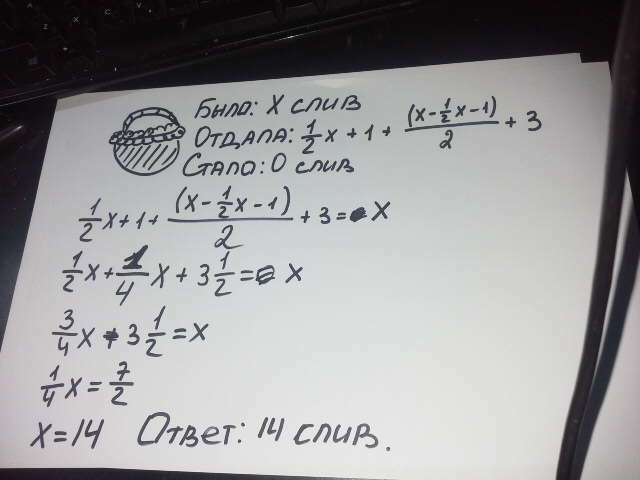 Было: X слив
Отдала: 1/2 x + 1 + (x - 1/2 x - 1)/2 + 3
Стало: 0 слив
1/2 x + 1 + (x - 1/2 x - 1)/2 + 3 = x
1/2 x + 1/4 x + 3 1/2 = x
3/4 x + 3 1/2 = x
1/4 x = 7/2
x = 14 Ответ: 14 слив.